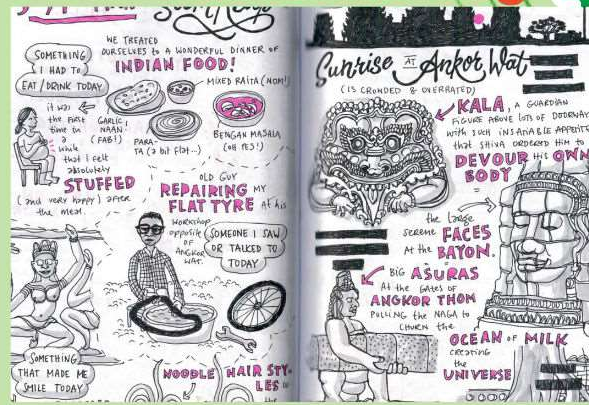 SOMETHING
I HAD TO
EAT/DRINK TODAY
WE TREATED
OURSELVES to A WONDERFUL DINNER OF
INDIAN FOOD!
MIXED RAITA (NOM!)
it was
the first
time in
a
while
that I felt
absolutely
STUFFED
(and very happy) after
the meal.
GARLIC
NAAN
(FAB!)
PARA-
TA (a bit flat...)
BENGAN MASALA
(OH YES!)
OLD GUY
REPAIRING MY
FLAT TYRE At his
WORKSHOP
opposite
OF
ANGKOR
WAT.
SOMEONE I SAW
OR TALKED TO
TODAY
SOMETHING
THAT MADE ME
SMILE TODAY
NOODLE HAIR STY-
LES
Sunrise AT Ankor Wat
(IS CROWDED & OVERRATED)
KALA, A GUARDIAN
FIGURE ABOVE LOTS OF DOORWAY
with SUCH INSATIABLE APPETITE
that SHIVA ORDERED HIM to
DEVOUR HIS OWN
BODY
the large
serene FACES
At the BAYON.
BIG ASURAS
At the GATES OF
ANGKOR THOM
PULLING the NAGA to
CHURN the
OCEAN OF MILK
CREATING
the
UNIVERSE